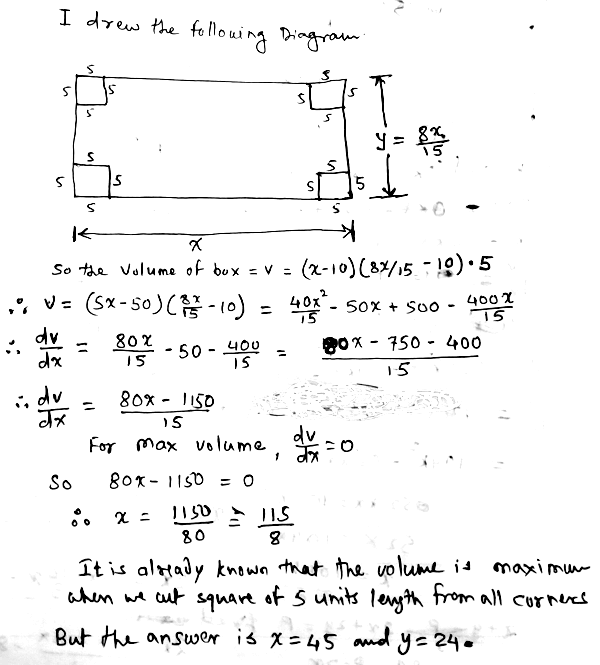 I drew the following Diagram.
5 5
5 5 5 5
5 5
y = 8x/15
5 5
5 5 5 5
5 5
x
So the volume of box = v = (x-10)(8x/15 - 10)·5
∴ V = (5x-50)(8x/15 - 10) = 40x²/15 - 50x + 500 - 400x/15
∴ dv/dx = 80x/15 - 50 - 400/15 = 80x - 750 - 400/15
∴ dv/dx = 80x - 1150/15
For max volume, dv/dx = 0
So 80x - 1150 = 0
∴ x = 1150/80 = 115/8
It is already known that the volume is maximum
when we cut square of 5 units length from all corners
But the answer is x = 45 and y = 24.